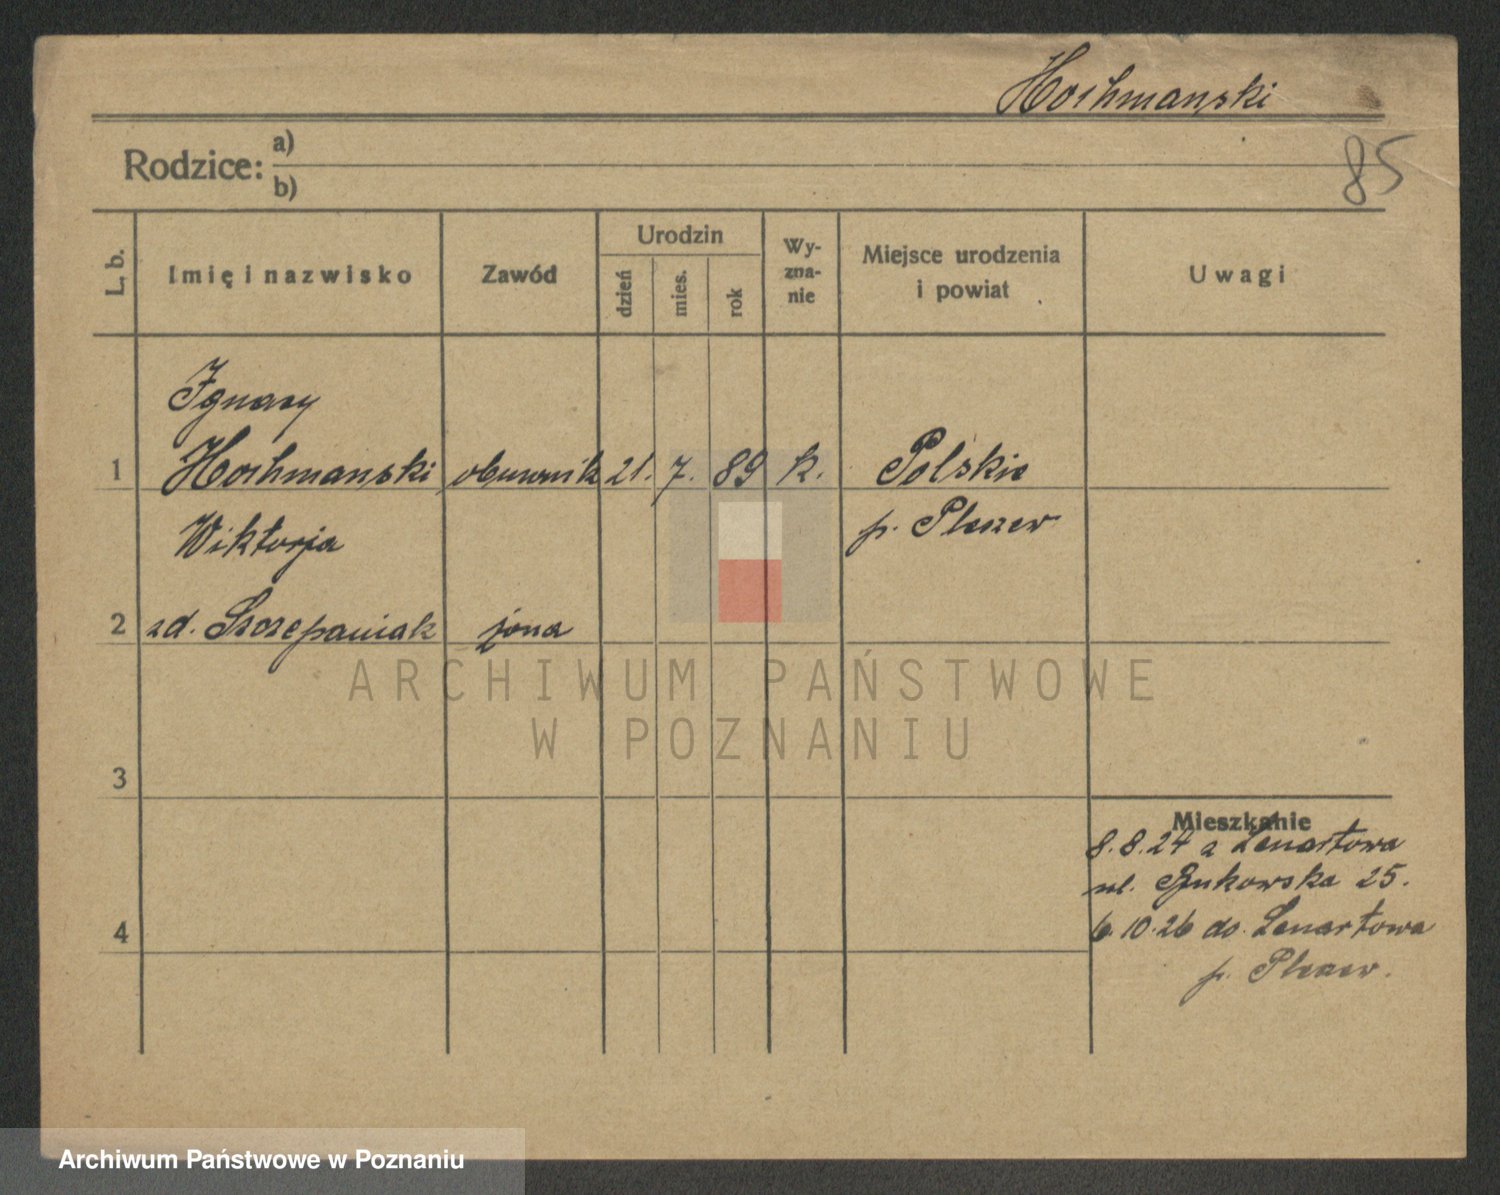 Hochmanski
85
Rodzice: a)
b)
L. b.
Imię i nazwisko
Zawód
Urodzin
dzień
mies.
rok
Wy-
zna-
nie
Miejsce urodzenia
i powiat
Uwagi
Ignacy
1 Hochmanski obuwnik 21. 7. 89 k. Polskie
Wiktorja p. Pleszew
2 zd. Szczepaniak żona
ARCHIWUM PAŃSTWOWE
W POZNANIU
3
Mieszkanie
8.8.24 z Lenartowa
ul. Bukowska 25.
4 6.10.26 do Lenartowa
p. Pleszew.
Archiwum Państwowe w Poznaniu